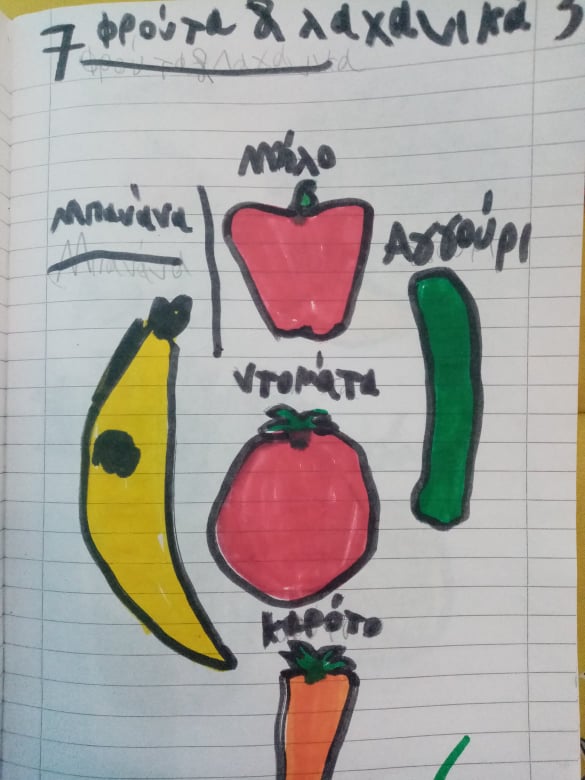 7 φρούτα & λαχανικά
φρούτα & λαχανικα
Μήλο
Μπανάνα
Μπανάνα
Αγγούρι
Ντομάτα
καρότο